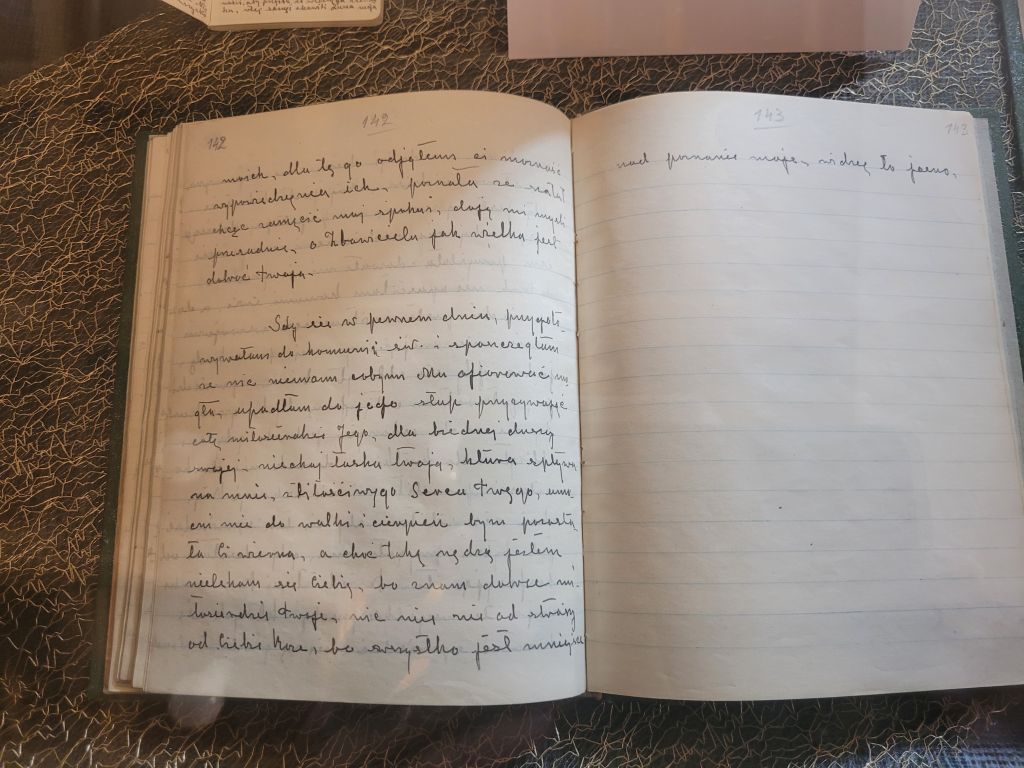 142
142
moich, dla tego odjęłam ci możność
wypowiedzenia ich, poznała że szatan
chcąc zamącić mój spokój, daje mi myśli
przesadne, o Zbawicielu jak wielka jest
dobroć Twoja.
Gdy się w pewnem dniu, przygoto-
wywałam do komunij św. i spostrzegłam
że nic niemam cobym Mu ofiarować mo
gła, upadłam do jego stup przyzywając
całę miłosierdzie Jego, dla biednej duszy
swojej. niechaj łaska twoja, która spływa
na mnie, z litościwego Serca Twego, umo
cni mie do walki i cierpień bym pozosta
ła Ci wierna, a choć taką nędzą jestem
nielękam się Ciebie, bo znam dobrze mi-
łosierdzie Twoje, nic mię nie od straszy
od Ciebie Boże, bo wszystko jest mniejsze
143
143
nad poznanie moje, widzę to jasno.